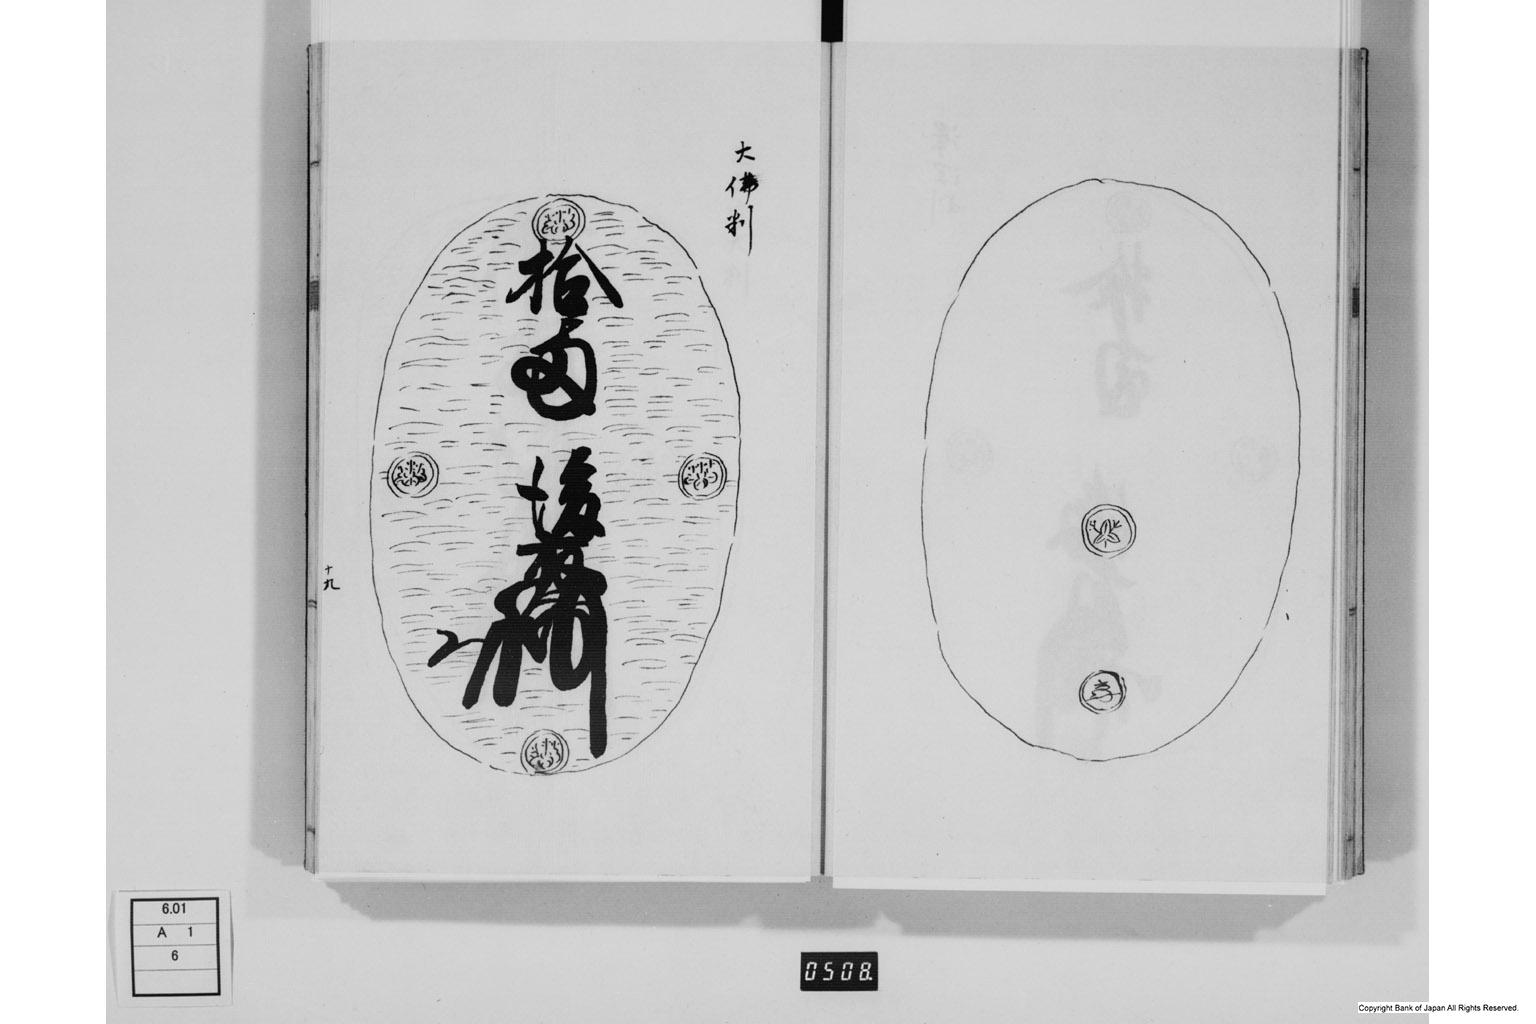 大佛判
拾両
後藤
十九
6.01
A 1
6
0508.
Copyright Bank of Japan All Rights Reserved.